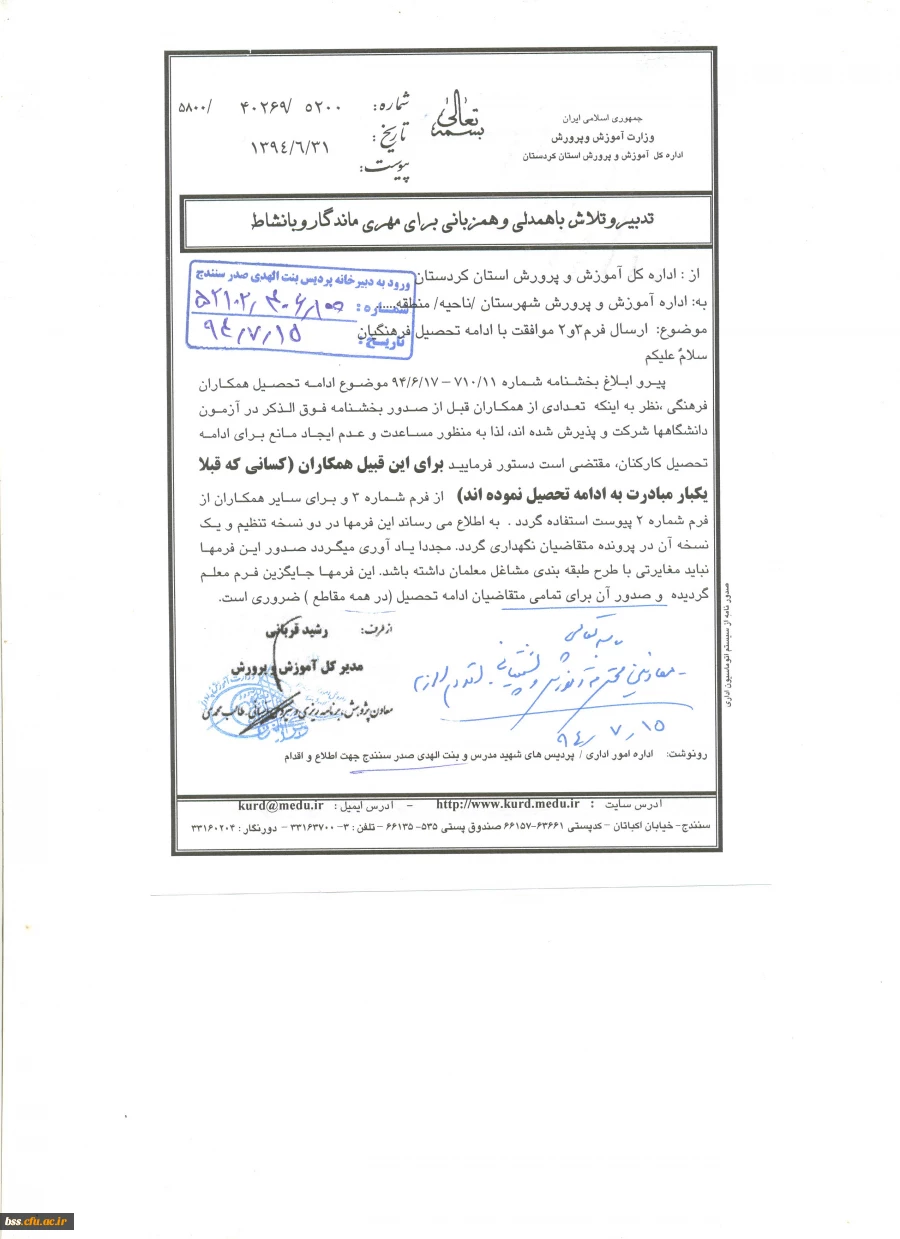 جمهوری اسلامی ایران
وزارت آموزش وپرورش
اداره کل آموزش و پرورش استان کردستان
بسمه تعالی
شماره: ۵۲۰۰ /۴۰۲۶۹ /۵۸۰۰
تاریخ: ۱۳۹۴/۶/۳۱
پیوست:
تدبیروتلاش باهمدلی وهمزبانی برای مهری ماندگاروبانشاط
از : اداره کل آموزش و پرورش استان کردستان
به: اداره آموزش و پرورش شهرستان /ناحیه/ منطقه....
موضوع: ارسال فرم۳و۲ موافقت با ادامه تحصیل فرهنگیان
ورود به دبیرخانه پردیس بنت الهدی صدر سنندج
شماره:
تاریخ: ۹۴٫۷٫۱۵
سلامٌ علیکم
پیرو ابلاغ بخشنامه شماره ۷۱۰/۱۱ – ۹۴/۶/۱۷ موضوع ادامه تحصیل همکاران
فرهنگی ،نظر به اینکه تعدادی از همکاران قبل از صدور بخشنامه فوق الذکر در آزمون
دانشگاهها شرکت و پذیرش شده اند، لذا به منظور مساعدت و عدم ایجاد مانع برای ادامه
تحصیل کارکنان، مقتضی است دستور فرمایید برای این قبیل همکاران (کسانی که قبلا
یکبار مبادرت به ادامه تحصیل نموده اند) از فرم شماره ۳ و برای سایر همکاران از
فرم شماره ۲ پیوست استفاده گردد . به اطلاع می رساند این فرمها در دو نسخه تنظیم و یک
نسخه آن در پرونده متقاضیان نگهداری گردد. مجددا یاد آوری میگردد صدور این فرمها
نباید مغایرتی با طرح طبقه بندی مشاغل معلمان داشته باشد. این فرمها جایگزین فرم معلم
گردیده و صدور آن برای تمامی متقاضیان ادامه تحصیل (در همه مقاطع ) ضروری است.
ازطرف: رشید قربانی
مدیر کل آموزش و پرورش
معاون پژوهش، برنامه ریزی و
باسمه تعالی
۹۴٫۷٫۱۵
رونوشت: اداره امور اداری / پردیس های شهید مدرس و بنت الهدی صدر سنندج جهت اطلاع و اقدام
صدور نامه از سیستم اتوماسیون اداری
آدرس سایت : http://www.kurd.medu.ir – آدرس ایمیل : kurd@medu.ir
سنندج- خیابان اکباتان – کدپستی ۶۳۶۶۱–۶۶۱۵۷ صندوق پستی ۵۳۵– ۶۶۱۳۵ – تلفن : ۳– ۳۳۱۶۳۷۰۰ – دورنگار : ۳۳۱۶۰۲۰۴
bss.cfu.ac.ir